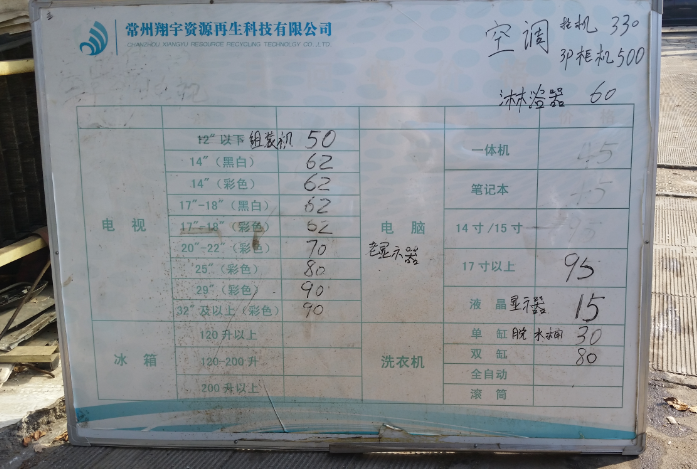 常州翔宇资源再生科技有限公司
CHANGZHOU XIANGYU RESOURCE RECYCLING TECHNOLOGY CO., LTD.
空调 挂机 330
3P柜机 500
淋浴器 60
电视
12"以下 组装机 50
14"(黑白) 62
14"(彩色) 62
17"-18"(黑白) 62
17"-18"(彩色) 62
20"-22"(彩色) 70
25"(彩色) 80
29"(彩色) 90
32"及以上(彩色) 90
冰箱
120升以上
120-200升
200升以上
电脑
老显示器
一体机 45
笔记本 45
14寸/15寸 95
17寸以上 95
液晶显示器 15
洗衣机
单缸 脱水桶 30
双缸 80
全自动
滚筒